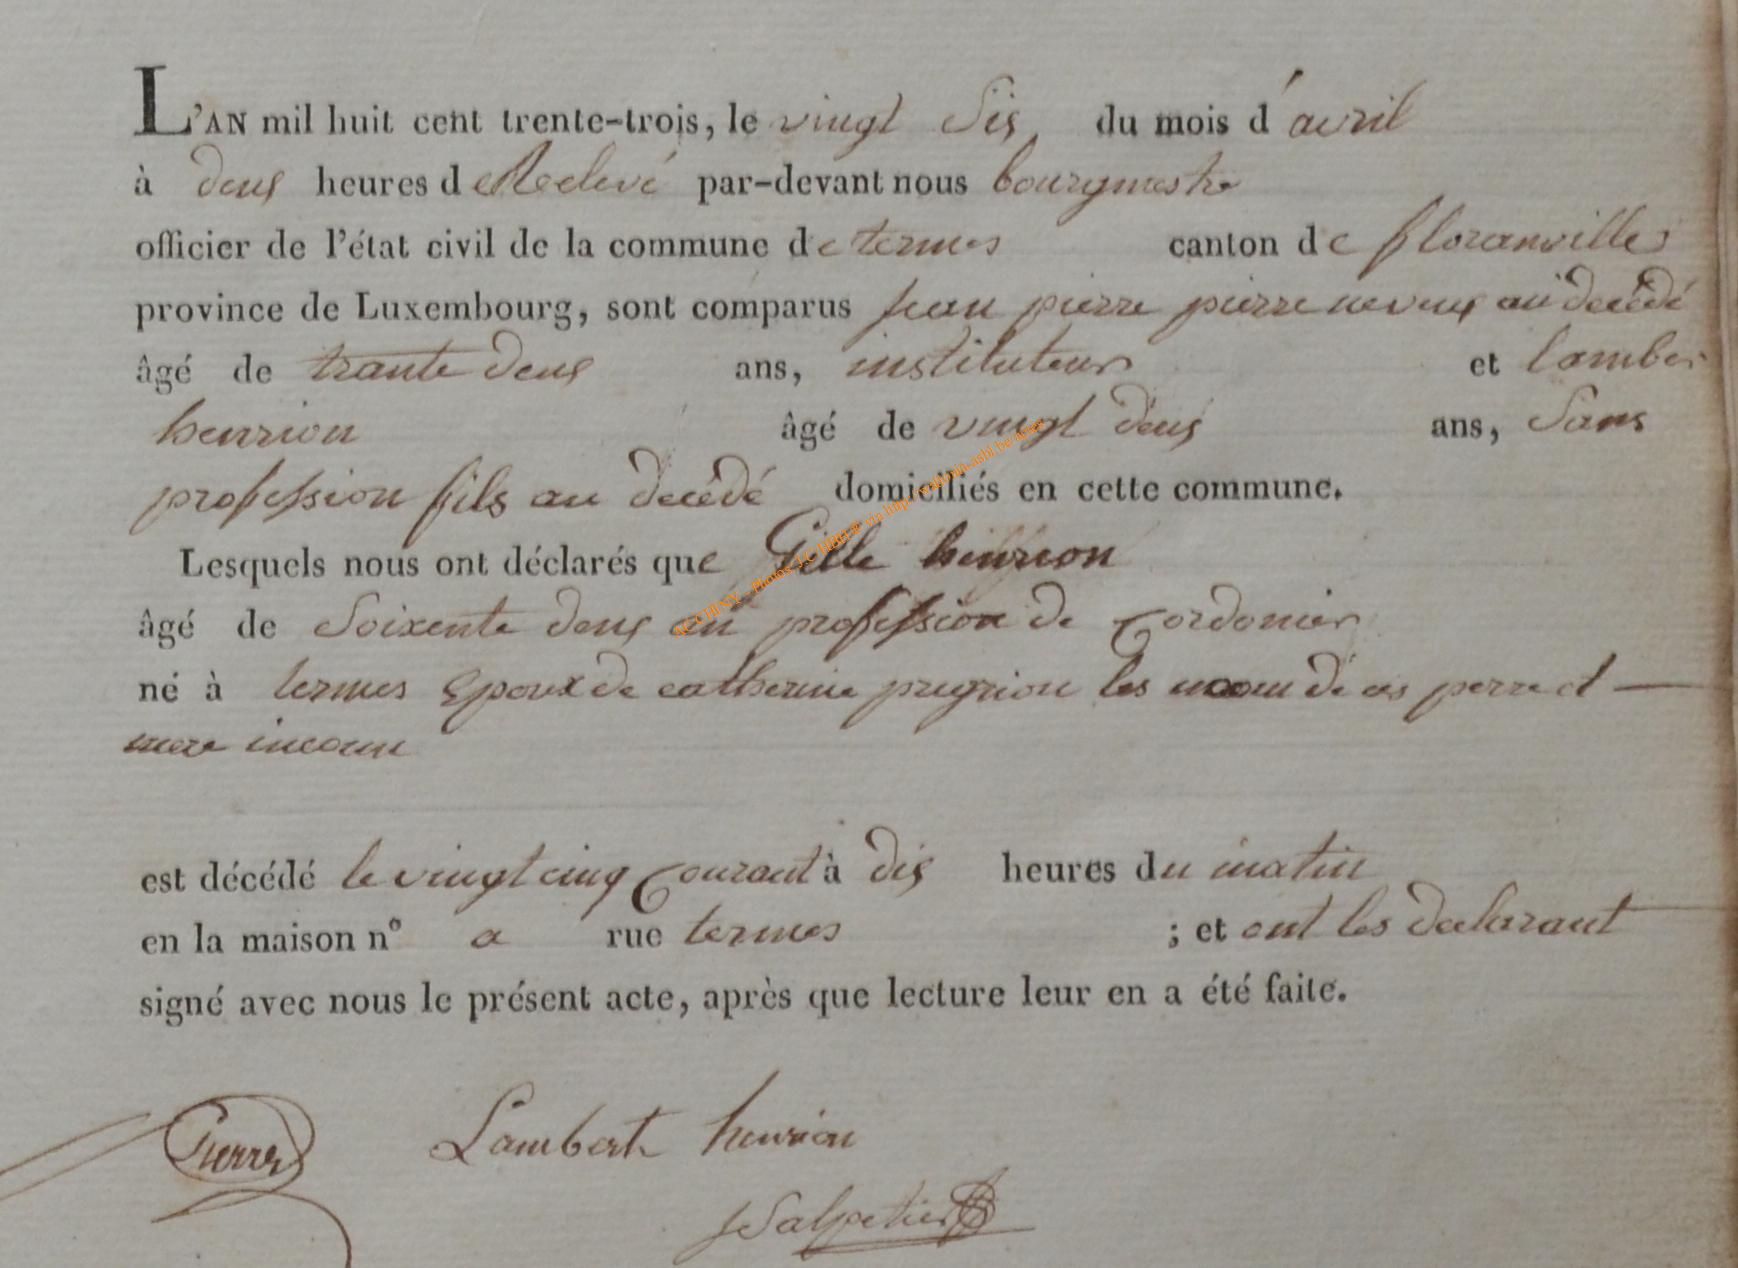 L'AN mil huit cent trente-trois, le vingt Sis du mois d'avril
à deus heures de Relevé par-devant nous bourgmestre
officier de l'état civil de la commune de termes canton de floranville
province de Luxembourg, sont comparus jean pierre pierre neveus au décédé
âgé de trante deus ans, instituteur et lamber
henrion âgé de vingt deus ans, Sans
profession fils au décédé domiciliés en cette commune.
Lesquels nous ont déclarés que Gille henrion
âgé de Soixente deus an profession de Cordonier
né à termes Epoux de catherine pregrion les noom de ces perre et
mere inconu
est décédé le vingt cinq Courant à dis heures du matin
en la maison n° a rue termes ; et ont les declarant
signé avec nous le présent acte, après que lecture leur en a été faite.
Pierre Lambert henrion
JSalpetier